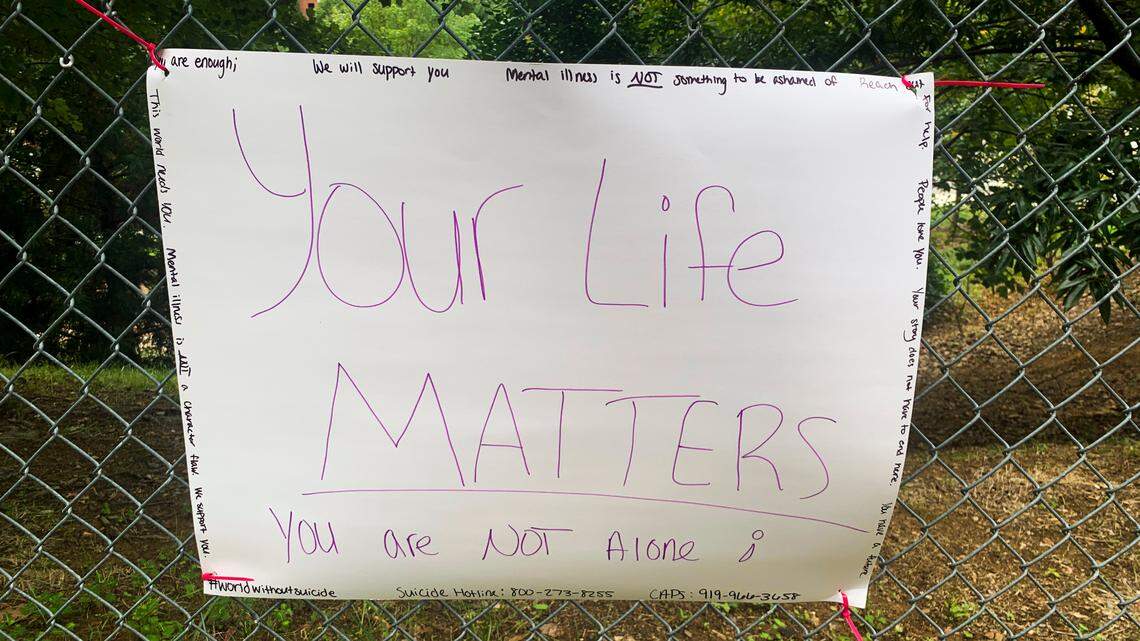 are enough;
We will support you
Mental illness is NOT something to be ashamed of
Reach out
for help. People love you. Your story does not have to end here. You have a future.
This world needs you. Mental illness is NOT a character flaw. We support you.
Your Life
MATTERS
You are NOT Alone ;
#worldwithoutsuicide
Suicide Hotline: 800-273-8255
CAPS: 919-966-3658